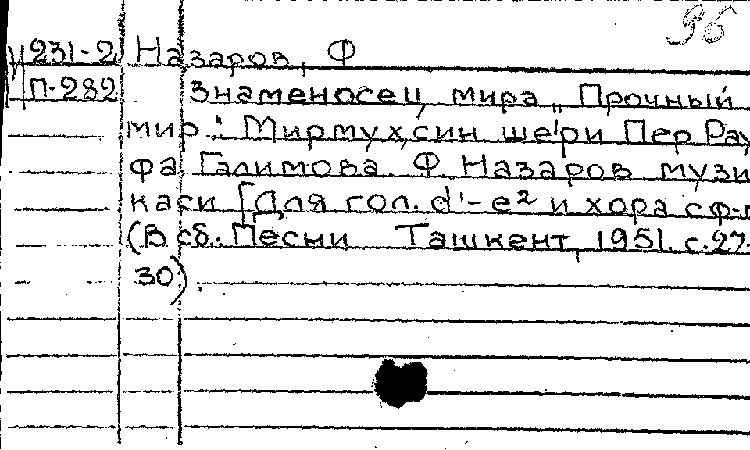 96
У231-2 Назаров, Ф
П-282 Знаменосец мира „Прочный
мир": Мирмухсин ше'ри Пер Рау
фа Галимова. Ф. Назаров музи
каси [Для гол. d'-e² и хора с ф-п
(В сб. Песни Ташкент, 1951. с.27-
30).